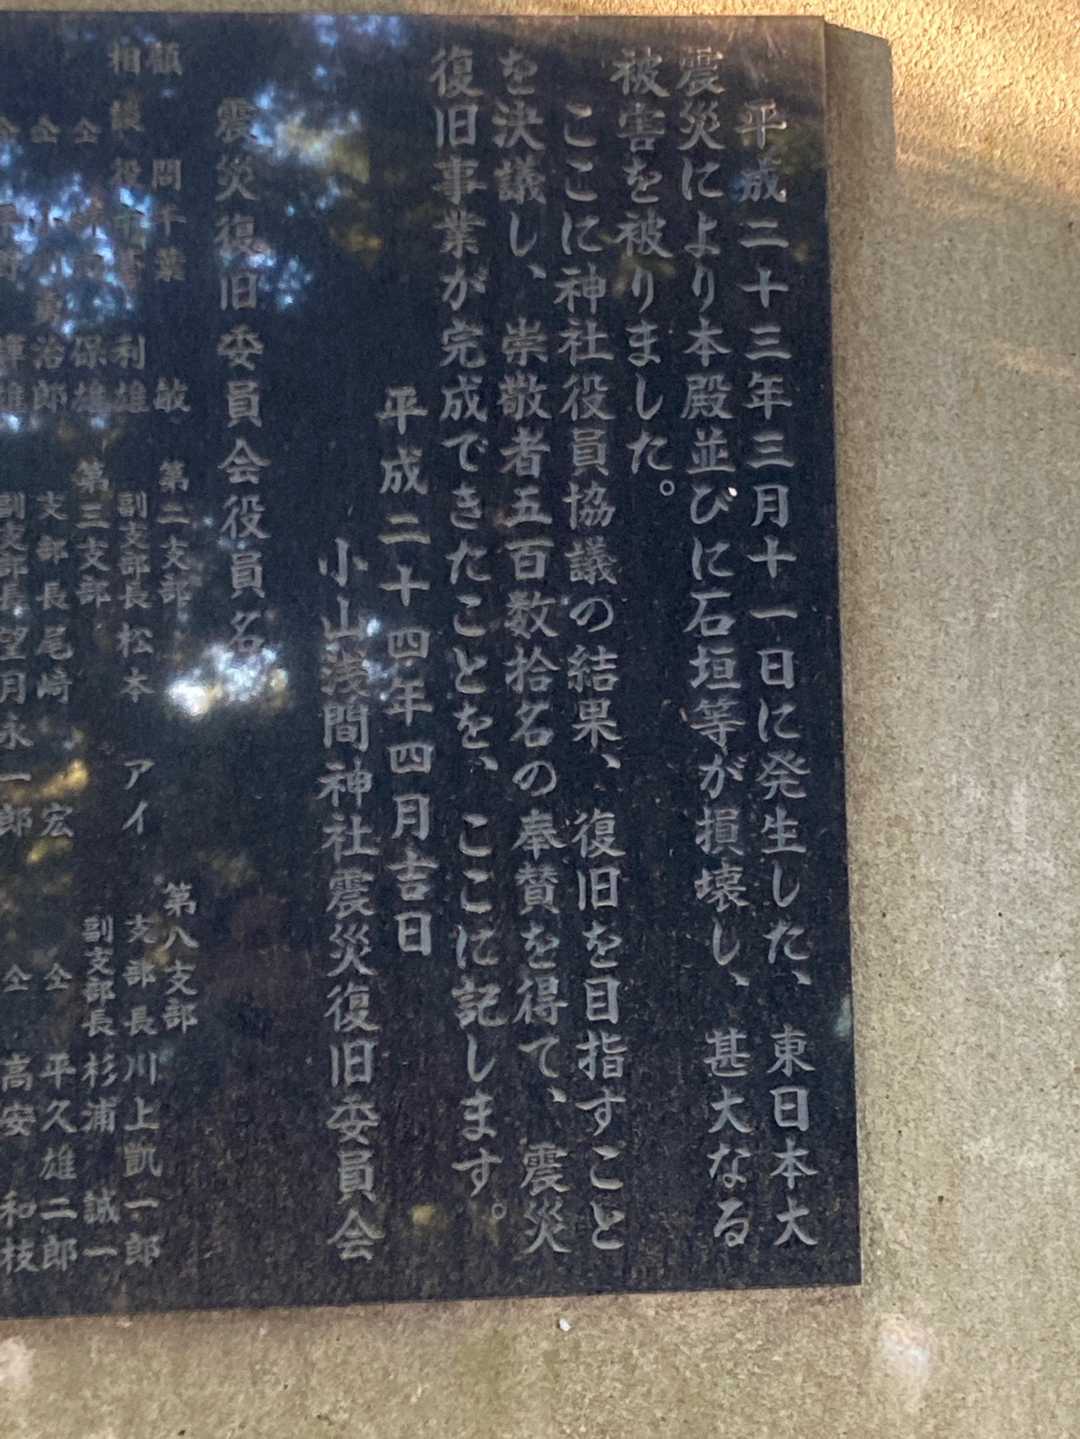 平成二十三年三月十一日に発生した、東日本大
震災により本殿並びに石垣等が損壊し、甚大なる
被害を被りました。
ここに神社役員協議の結果、復旧を目指すこと
を決議し、崇敬者五百数拾名の奉賛を得て、震災
復旧事業が完成できたことを、ここに記します。
平成二十四年四月吉日
小山浅間神社震災復旧委員会
震災復旧委員会役員名
顧問千葉 敏 第二支部 第八支部
相談役 利雄 副支部長松本 アイ 支部長川上凱一郎
仝 保雄 第三支部 副支部長杉浦 誠一
仝 治郎 支部長尾崎 宏 仝 平久雄二郎
仝 雄 副支部長望月永一郎 仝 高安 和枝